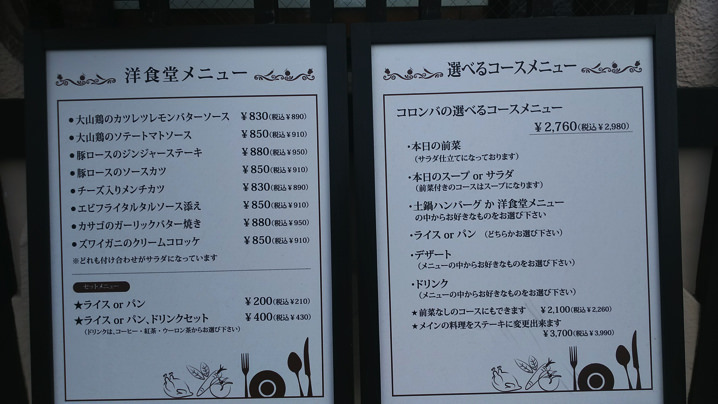 洋食堂メニュー
●大山鶏のカツレツレモンバターソース ￥830(税込￥890)
●大山鶏のソテートマトソース ￥850(税込￥910)
●豚ロースのジンジャーステーキ ￥880(税込￥950)
●豚ロースのソースカツ ￥850(税込￥910)
●チーズ入りメンチカツ ￥830(税込￥890)
●エビフライタルタルソース添え ￥850(税込￥910)
●カサゴのガーリックバター焼き ￥880(税込￥950)
●ズワイガニのクリームコロッケ ￥850(税込￥910)
※どれも付け合わせがサラダになっています
セットメニュー
★ライス or パン ￥200(税込￥210)
★ライス or パン、ドリンクセット ￥400(税込￥430)
(ドリンクは、コーヒー・紅茶・ウーロン茶からお選び下さい)
選べるコースメニュー
コロンバの選べるコースメニュー
￥2,760(税込￥2,980)
・本日の前菜
(サラダ仕立てになっております)
・本日のスープ or サラダ
(前菜付きのコースはスープになります)
・土鍋ハンバーグ か 洋食堂メニュー
の中からお好きなものをお選び下さい
・ライス or パン (どちらかお選び下さい)
・デザート
(メニューの中からお好きなものをお選び下さい)
・ドリンク
(メニューの中からお好きなものをお選び下さい)
★前菜なしのコースにもできます ￥2,100(税込￥2,260)
★メインの料理をステーキに変更出来ます
￥3,700(税込￥3,990)